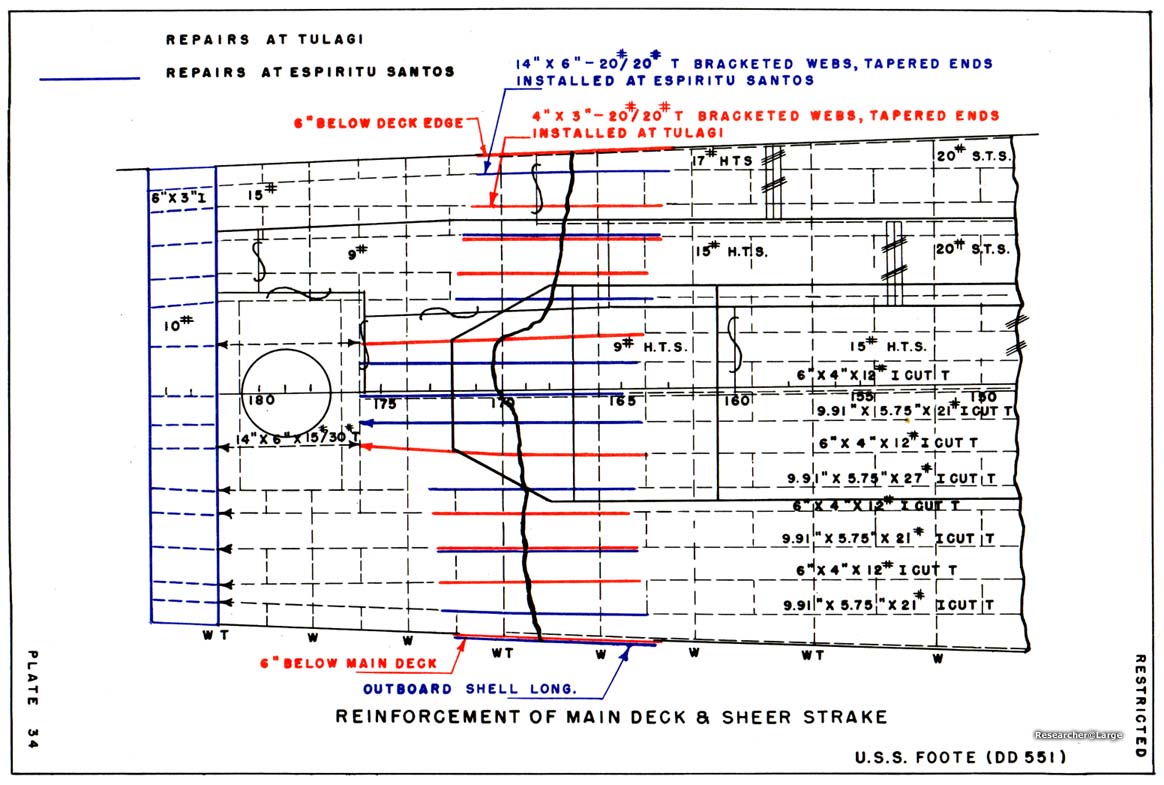 REPAIRS AT TULAGI
REPAIRS AT ESPIRITU SANTOS
14" X 6" - 20#/20# T BRACKETED WEBS, TAPERED ENDS
INSTALLED AT ESPIRITU SANTOS
6" BELOW DECK EDGE
4" X 3" - 20#/20# T BRACKETED WEBS, TAPERED ENDS
INSTALLED AT TULAGI
17# HTS
20# S.T.S.
6" X 3" I
15#
9#
15# H.T.S.
20# S.T.S.
10#
9# H.T.S.
15# H.T.S.
6" X 4" X 12# I CUT T
180 175 170 165 160 155 150
9.91" X 5.75" X 21# I CUT T
14" X 6" X 15#/30# T
6" X 4" X 12# I CUT T
9.91" X 5.75" X 27# I CUT T
6" X 4" X 12# I CUT T
9.91" X 5.75" X 21# I CUT T
6" X 4" X 12# I CUT T
9.91" X 5.75" X 21# I CUT T
WT W W WT W W WT W
6" BELOW MAIN DECK
OUTBOARD SHELL LONG.
REINFORCEMENT OF MAIN DECK & SHEER STRAKE
U.S.S. FOOTE (DD 551)
PLATE 34
RESTRICTED
Researcher@Large